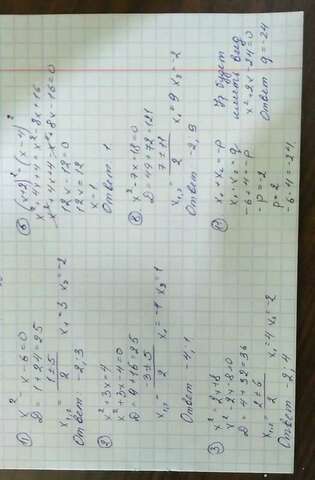 1) x² - x - 6 = 0
D = 1 + 24 = 25
x₁,₂ = (1 ± 5)/2 x₁ = 3 x₂ = -2
Ответ -2; 3
2) x² + 3x = 4
x² + 3x - 4 = 0
D = 9 + 16 = 25
x₁,₂ = (-3 ± 5)/2 x₁ = -4 x₂ = 1
Ответ -4, 1
3) x² = 2x + 8
x² - 2x - 8 = 0
D = 4 + 32 = 36
x₁,₂ = (2 ± 6)/2 x₁ = 4 x₂ = -2
Ответ -2, 4
(x + 2)² = (x - 4)²
x² + 4x + 4 = x² - 8x + 16
x² + 4x + 4 - x² + 8x - 16 = 0
12x - 12 = 0
12x = 12
x = 1
Ответ 1
x² - 7x - 18 = 0
D = 49 + 72 = 121
x₁,₂ = (7 ± 11)/2 x₁ = 9 x₂ = -2
Ответ -2, 9
x₁ + x₂ = -p
x₁ · x₂ = q
-6 + 4 = -p
-p = -2
p = 2
-6 · 4 = -24
Ур будет
иметь вид
x² + 2x - 24 = 0
Ответ q = -24